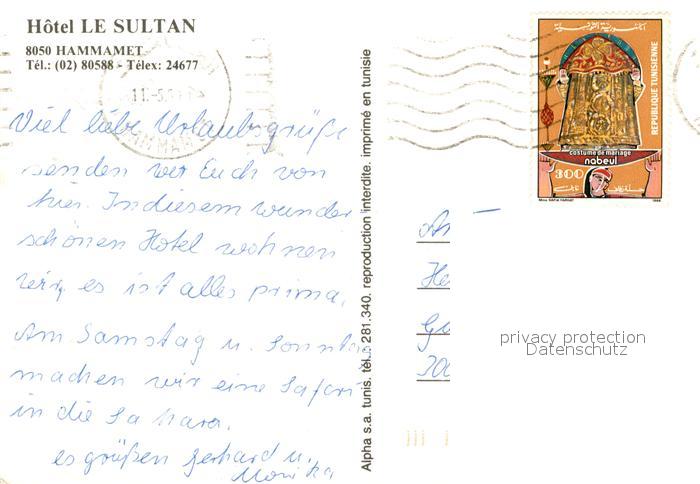 Hôtel LE SULTAN
8050 HAMMAMET
Tél.: (02) 80588 - Télex: 24677
Viel liebe Urlaubsgrüße
senden wir Euch von
hier. In diesem wunder
schönen Hotel wohnen
wir, es ist alles prima.
Am Samstag u. Sonntag
machen wir eine Safari
in die Sahara.
es grüßen Gerhard u.
Monika
Alpha s.a. tunis. tél.: 281.340. reproduction interdite. imprimé en tunisie
الجمهورية التونسية
REPUBLIQUE TUNISIENNE
costume de mariage
nabeul
300
1986
An
He
Gu
privacy protection
Datenschutz